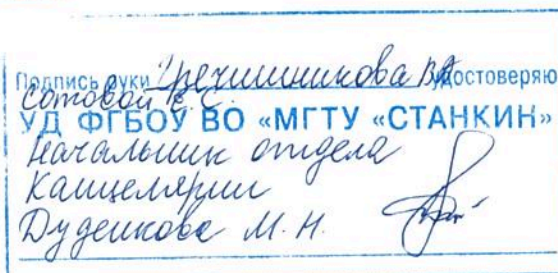 Подпись руки Гречишникова В.А. удостоверяю
Сотовой К. С.
УД ФГБОУ ВО «МГТУ «СТАНКИН»
Начальник отдела
Канцелярии
Дуденкова М. Н.